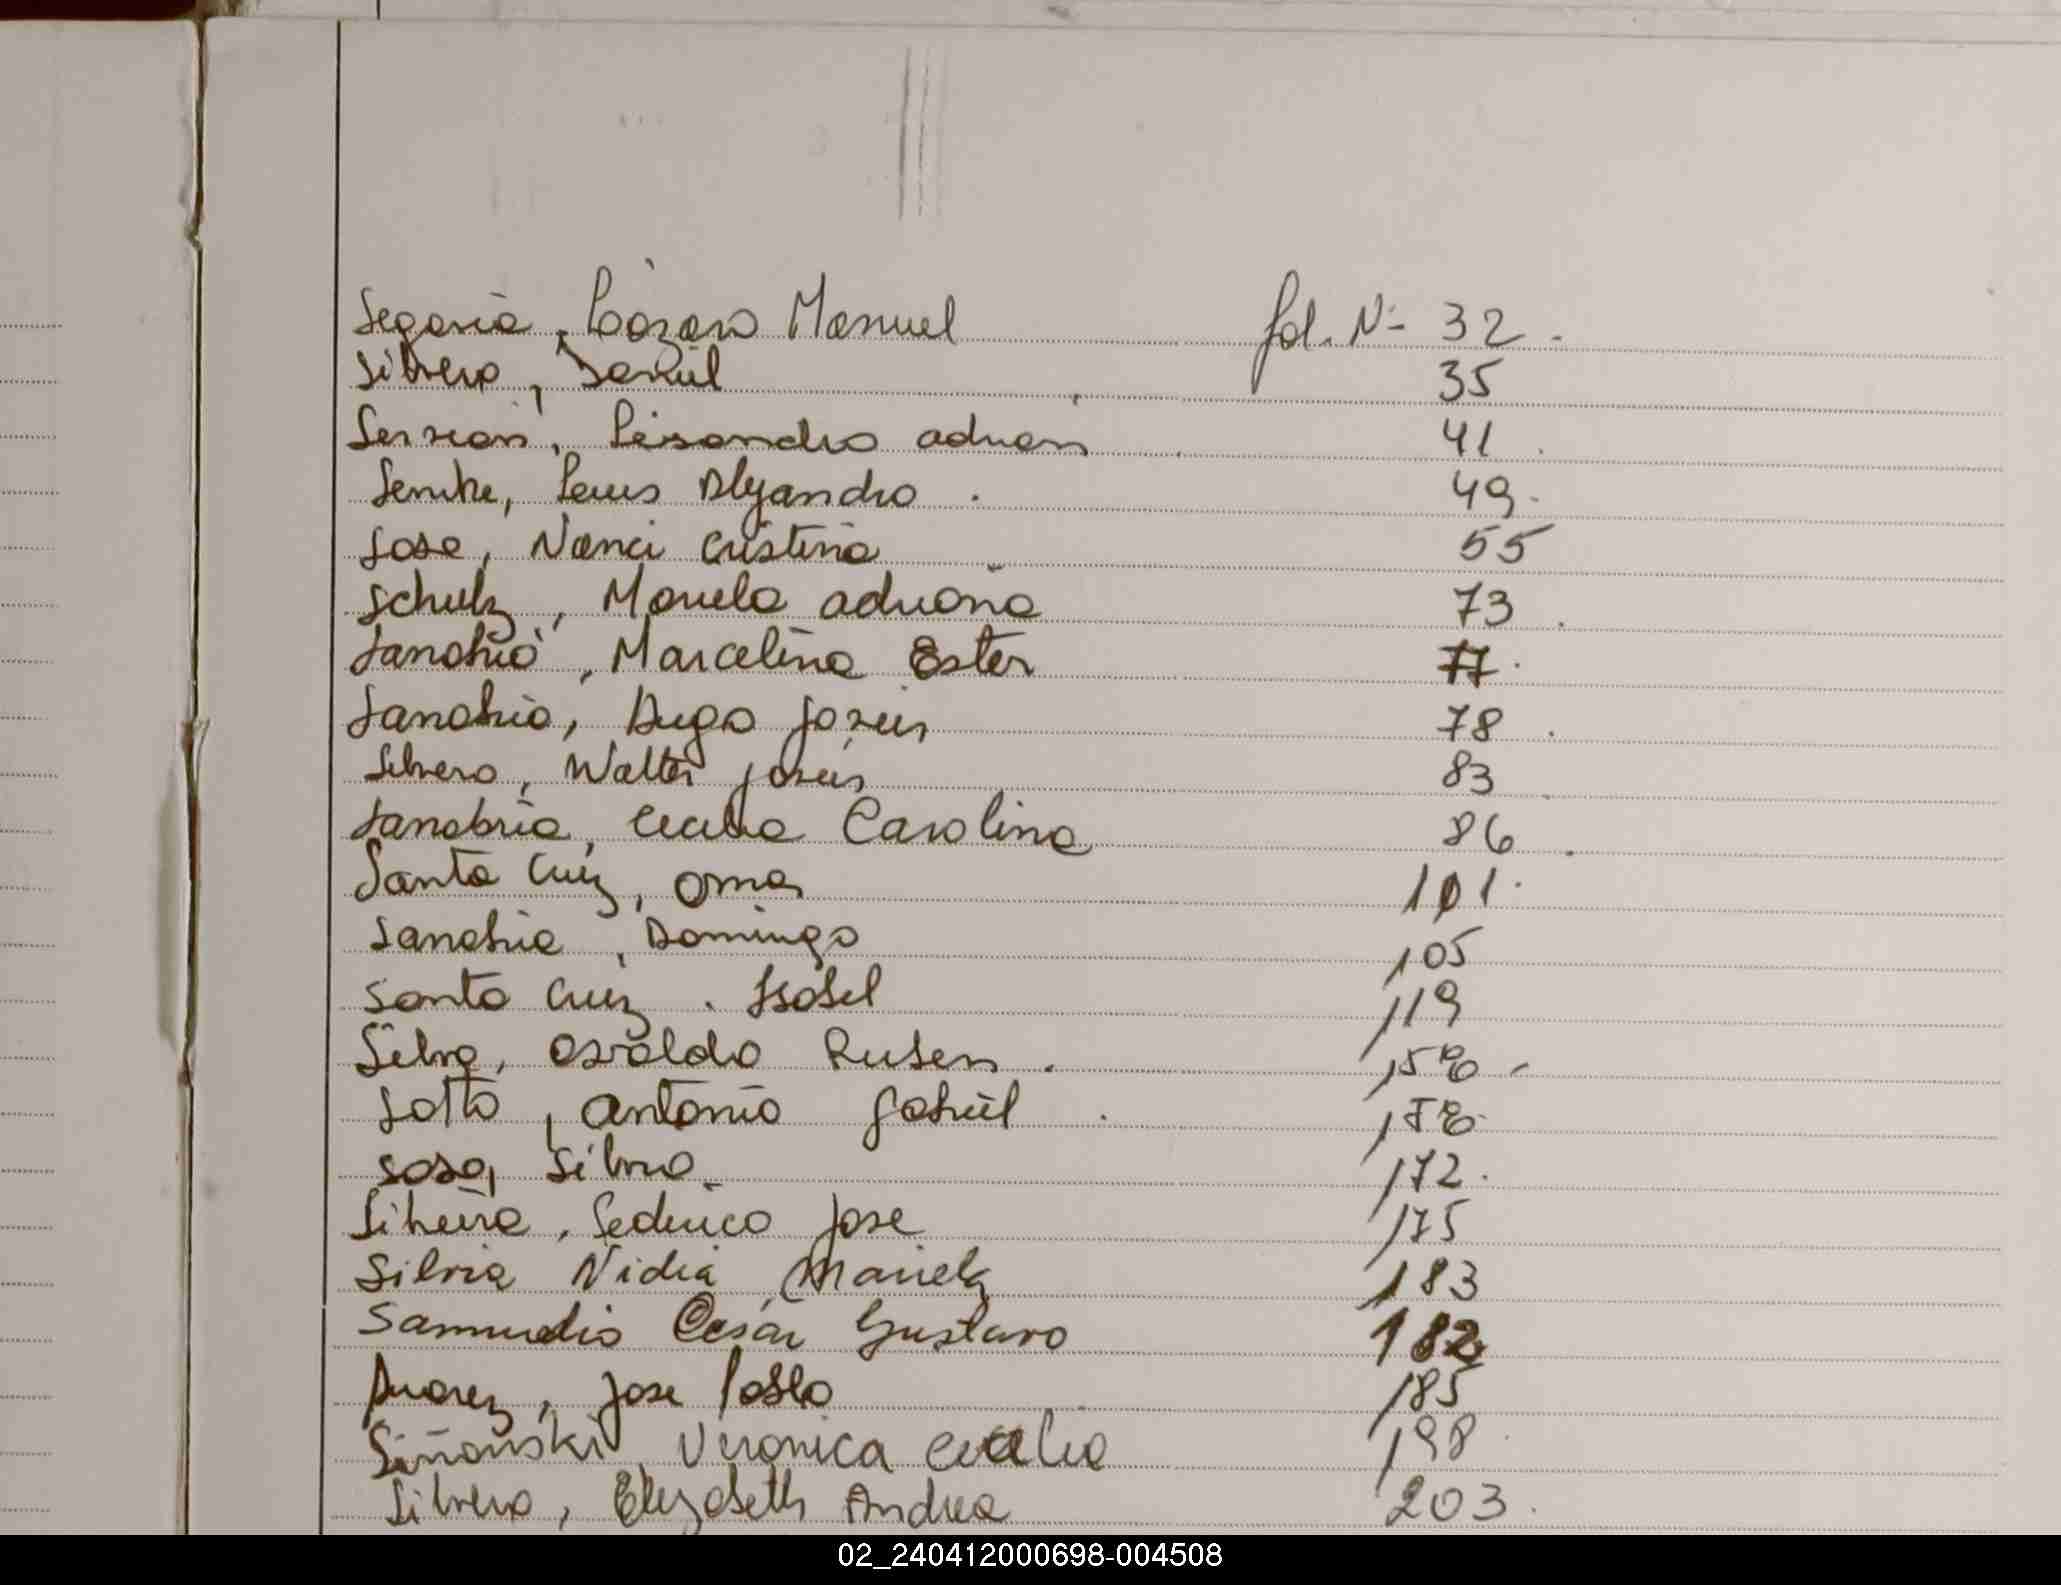 Segovia, Lázaro Manuel fol. Nº 32.
Silvero, Daniel 35
Servian, Lisandro adrian 41.
Senke, Luis Alejandro. 49.
Sosa, Nanci Cristina 55
Schulz, Mariela adriana 73.
Sanabria, Marcelina Ester 77.
Sanabria, Hugo Jesús 78.
Silvero, Walter Jesús 83
Sanabria, Cecilia Carolina 86.
Santa Cruz, Omar 101.
Sanabria, Domingo 105
Santa Cruz. Isabel 119
Silva, Osvaldo Ruben.
Sotto, antonio Gabriel.
sosa, Silvia 172.
Silveira, Federico Jose 175
Silvia Nidia, Mariela 183
Samudio Cesár Gustavo 182
Suarez, Jose Pablo 185
Veronica Cecilia 198.
Silvero, Elizabeth Andrea 203.
02_240412000698-004508